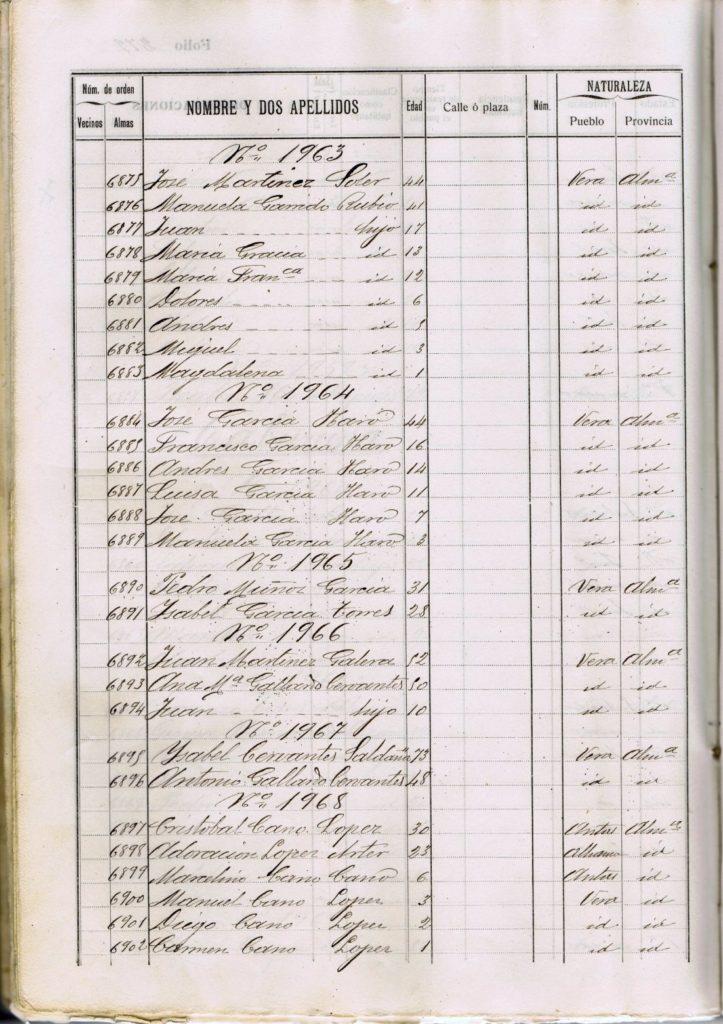 Folio
Núm. de orden NOMBRE Y DOS APELLIDOS Edad Calle ó plaza Núm. NATURALEZA
Vecinos Almas Pueblo Provincia
Nº 1963
6875 Jose Martinez Soler 44 Vera Almª
6876 Manuela Garrido Rubio 41 id id
6877 Juan hijo 17 id id
6878 Maria Gracia id 13 id id
6879 Maria Franca id 12 id id
6880 Dolores id 6 id id
6881 Andres id 5 id id
6882 Miguel id 3 id id
6883 Magdalena id 1 id id
Nº 1964
6884 Jose Garcia Haro 44 Vera Almª
6885 Francisco Garcia Haro 16 id id
6886 Andres Garcia Haro 14 id id
6887 Luisa Garcia Haro 11 id id
6888 Jose Garcia Haro 7 id id
6889 Manuela Garcia Haro 3 id id
Nº 1965
6890 Pedro Muñoz Garcia 31 Vera Almª
6891 Ysabel Garcia Torres 28 id id
Nº 1966
6892 Juan Martinez Galera 52 Vera Almª
6893 Ana Mª Gallardo Cervantes 50 id id
6894 Juan hijo 10 id id
Nº 1967
6895 Ysabel Cervantes Saldaña 73 Vera Almª
6896 Antonio Gallardo Cervantes 48 id id
Nº 1968
6897 Cristobal Cano Lopez 30 Antas Almª
6898 Adoracion Lopez 23 id
6899 Marcelino Cano Cano 6 Antas id
6900 Manuel Cano Lopez 3 Vera id
6901 Diego Cano Lopez 2 id id
6902 Carmen Cano Lopez 1 id id